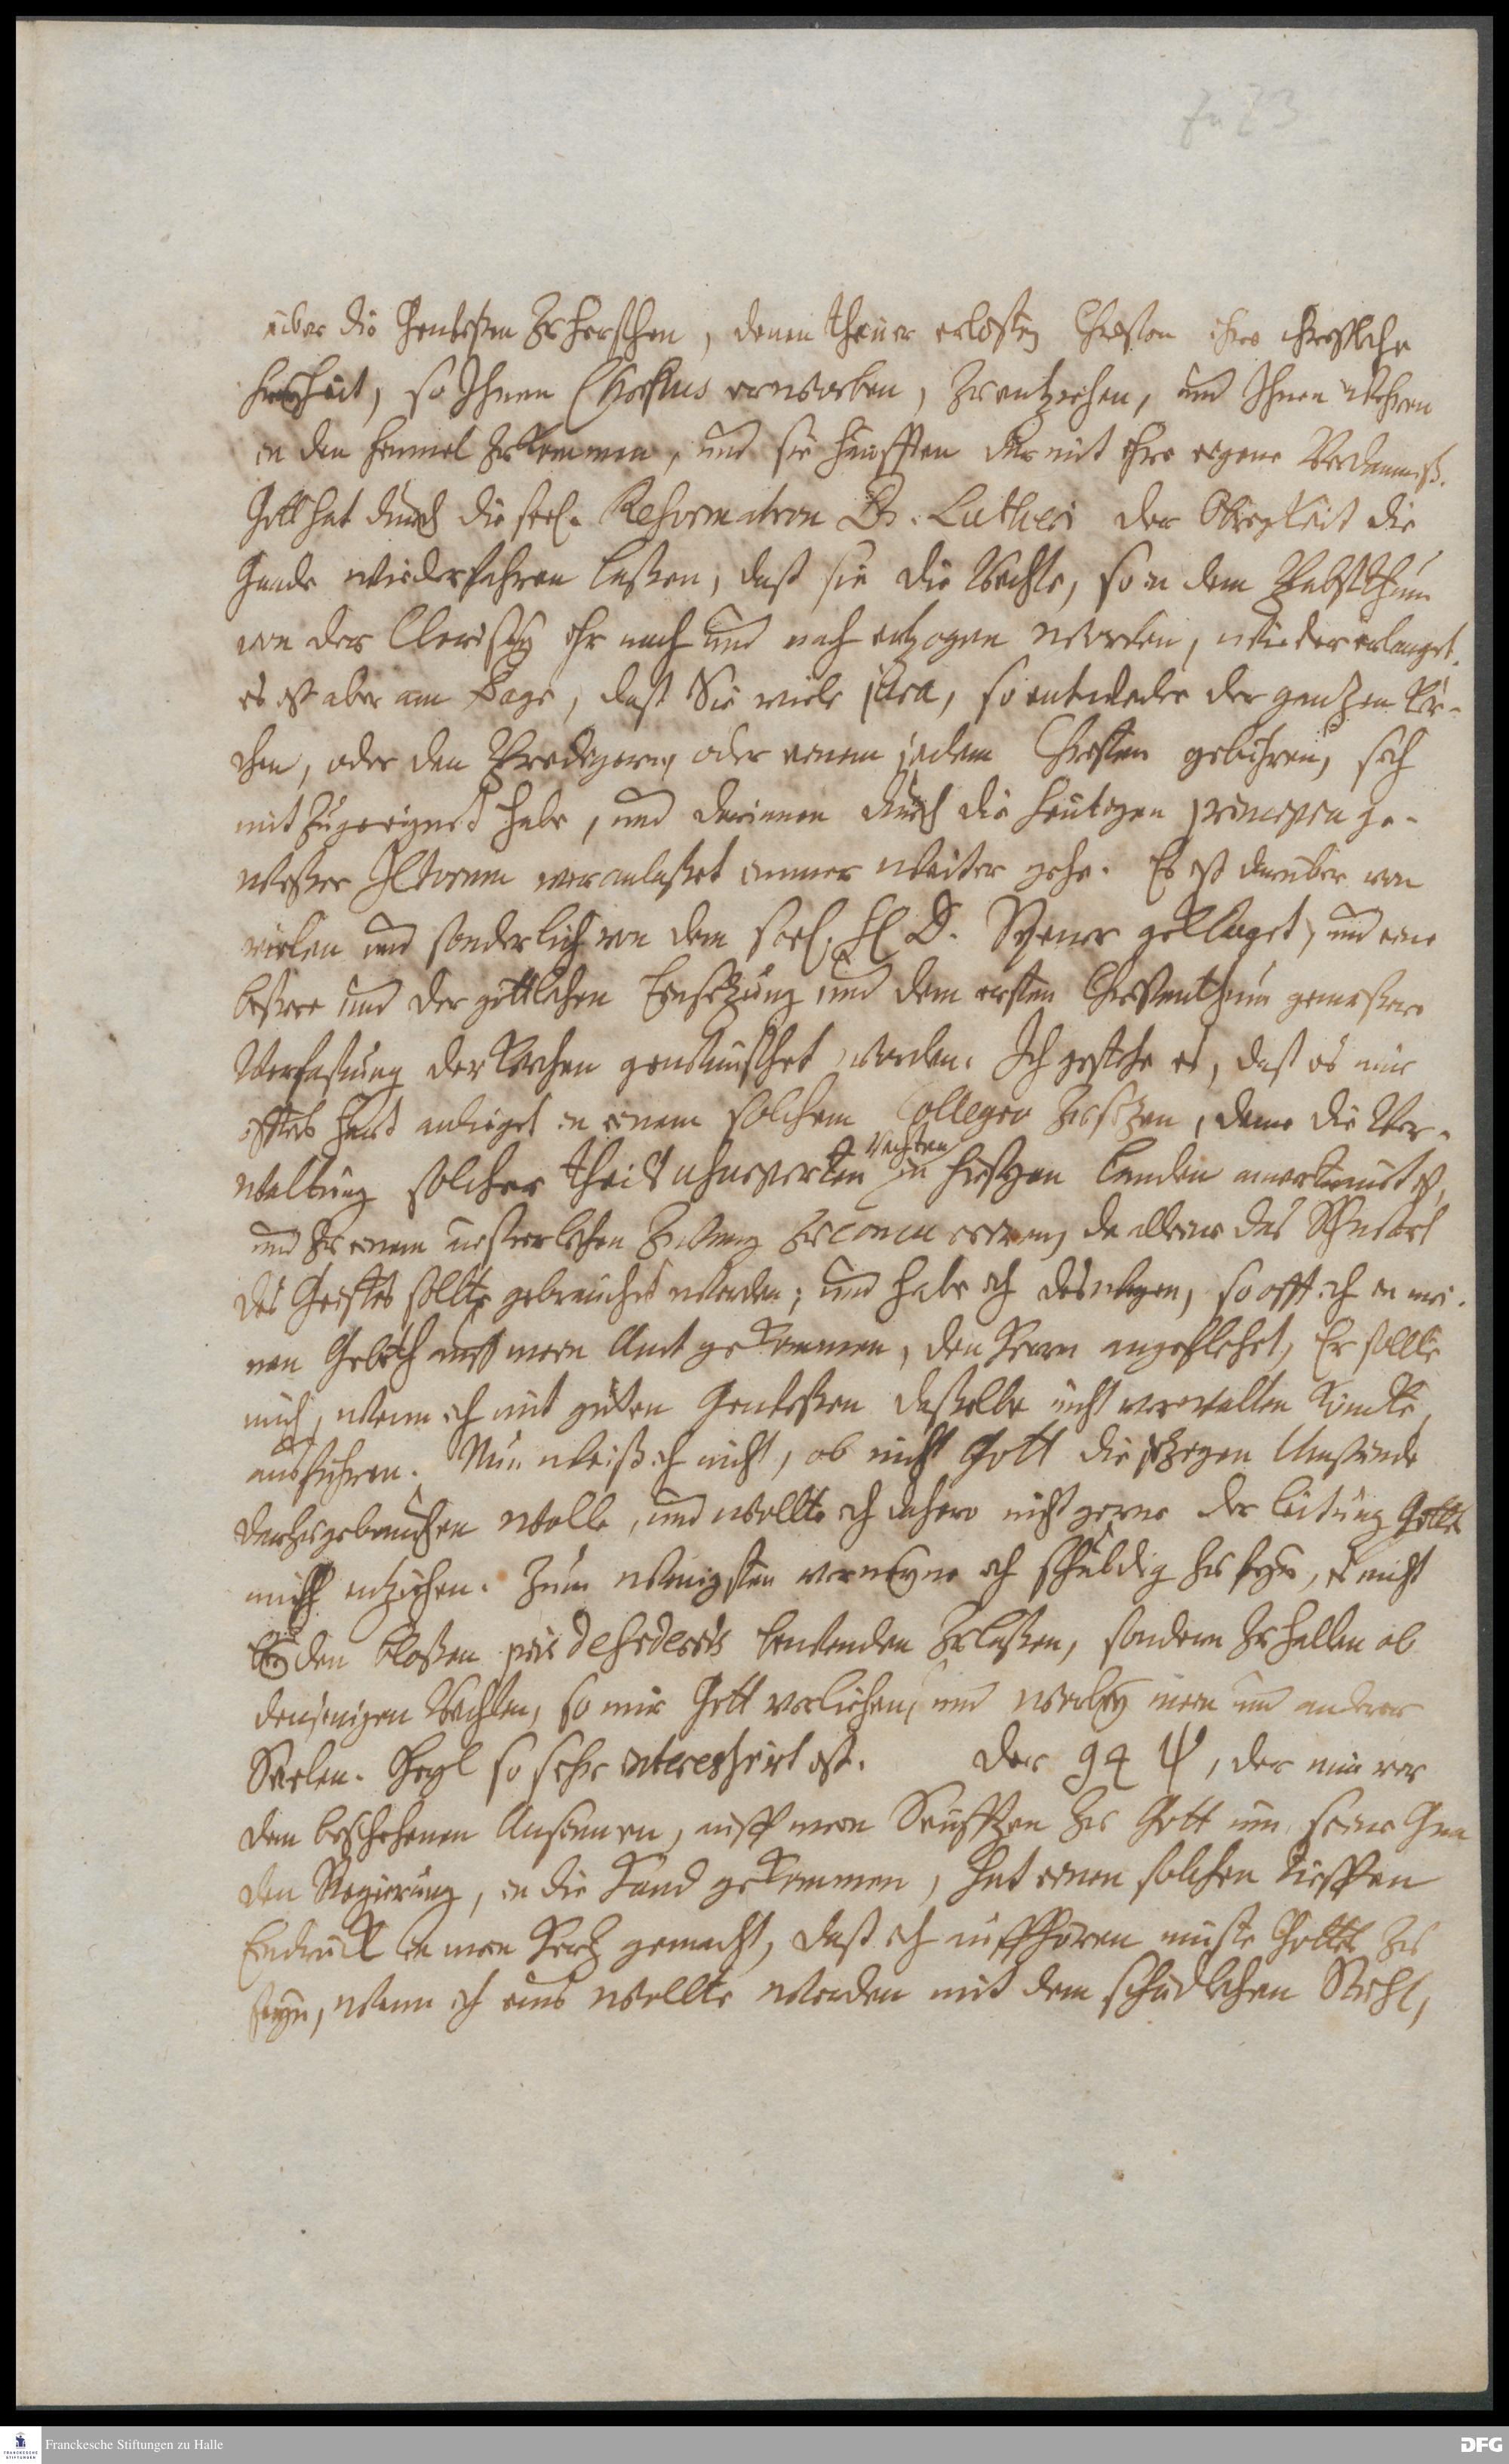 Zu Z3
über die Gewißen zu herschen, denen theuer erlösten Christen ihre christliche
Freyheit, so Ihnen Christus erworben, zu entziehen, und Ihnen wehren
in den Himmel zu kommen, und sie häufften damit ihre eigene Verdamniß.
Gott hat durch die seel. Reformation D. Lutheri der Obrigkeit die
Gnade wiederfahren laßen, daß sie die Rechte, so in dem Pabstthum
von der Clerisey ihr nach und nach entzogen worden, wieder erlanget.
es ist aber am Tage, daß Sie viele jura, so entweder der gantzen Kir-
chen, oder den Predigern, oder einem jedem Christen gebühren, sich
mit zugeeignet habe, und darinnen durch die heutigen principia ge-
wißer JCtorum veranlaßet immer weiter gehe. Es ist darüber von
vielen und sonderlich von dem seel. H. D. Spener geklaget, und eine
beßere und der göttlichen Einsetzung und dem ersten Christenthum gemäßere
Verfaßung der Kirchen gewünschet worden. Ich gestehe es, daß es mir
offters hart anlieget in einem solchem Collegio zu sitzen, deme die Ver-
waltung solcher theils usurpirten Rechten in hiesigen Landen anvertrauet ist,
und zu einem äußerlichen Zwang zu concurriren, da alleine das Schwerd
des Geistes sollte gebrauchet werden; und habe ich deswegen, so offt ich in mei-
nen Gebeth auff mein Amt gekommen, den Herrn angeflehet, Er sollte
mich, wenn ich mit guten Gewißen daßelbe nicht verwalten könnte,
ausführen. Nun weiß ich nicht, ob nicht Gott die jetzigen Umstände
darzu gebrauchen wolle, und wollte ich dahero nicht gerne der Leitung Gottes
mich entziehen. Zum wenigsten vermeyne ich schuldig zu seyn, es nicht
bey den bloßen piis desideriis bewenden zu laßen, sondern zu halten ob
denjenigen Rechten, so mir Gott verliehen, und worbey mein und anderer
Seelen-Heyl so sehr interessirt ist. Der 94 Ψ, der mir vor
dem beschehenen Ansinnen, auff mein Seufftzen zu Gott um seine Gna
den Regierung, in die Hand gekommen, hat einen solchen tieffen
Eindruck in mein Hertz gemacht, daß ich auffhören müste Gottes zu
seyn, wann ich eins wollte werden mit dem schädlichen Stuhl,
Franckesche Stiftungen zu Halle
DFG